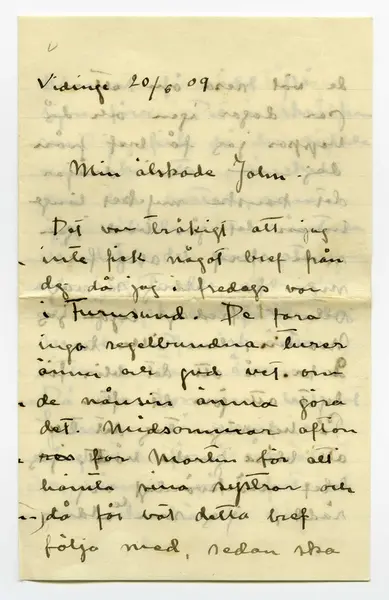 Vidinge 20/6 09
Min älskade John.
Det var tråkigt att jag
inte fick något bref från
dig då jag i fredags var
i Furusund. De fara
inga regelbundna turer
ännu och gud vet om
de nånsin ämna göra
det. Midsommar afton
far Martin för att
hämta sina systrar och
då får väl detta bref
följa med, sedan ska